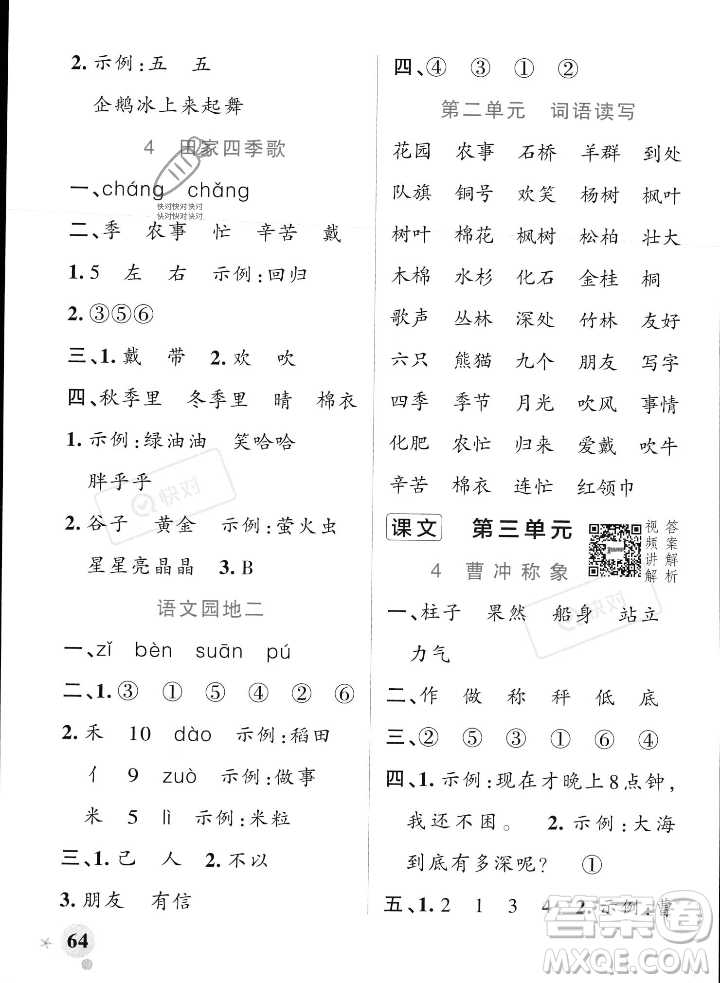 2. 示例:五 五
企鹅冰上来起舞
4 田家四季歌
一、cháng chǎng
快对快对快对
快对快对快对
二、季 农事 忙 辛苦 戴
1. 5 左 右 示例:回归
2. ③⑤⑥
三、1. 戴 带 2. 欢 吹
四、秋季里 冬季里 晴 棉衣
1. 示例:绿油油 笑哈哈
胖乎乎
快对
2. 谷子 黄金 示例:萤火虫
星星亮晶晶 3. B
语文园地二
一、zǐ bèn suān pú
二、1. ③ ① ⑤ ④ ② ⑥
2. 禾 10 dào 示例:稻田
亻 9 zuò 示例:做事
米 5 lì 示例:米粒
三、1. 己 人 2. 不以
3. 朋友 有信
64
四、④ ③ ① ②
第二单元 词语读写
花园 农事 石桥 羊群 到处
队旗 铜号 欢笑 杨树 枫叶
树叶 棉花 枫树 松柏 壮大
木棉 水杉 化石 金桂 桐
歌声 丛林 深处 竹林 好友
六只 熊猫 九个 朋友 写字
四季 季节 月光 吹风 事情
化肥 农忙 归来 爱戴 吹牛
辛苦 棉衣 连忙 红领巾
课文 第三单元
视频讲解
答案解析
4 曹冲称象
一、柱子 果然 船身 站立
力气
快对
二、作 做 称 秤 低 底
三、② ⑤ ① ③ ④
四、1. 示例:现在才晚上8点钟,
我还不困。 2. 示例:大海
到底有多深呢? ①
五、1. 2 1 3 4 2. 示例:曹
答案圈
MXQE.COM